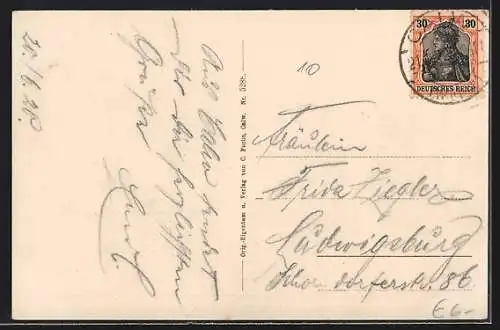 20./6.20.
Aus Calw sendet
Dir die herzlichsten
Grüße
Orig.-Eigentum u. Verlag von C. Fuchs, Calw. Nr. 5288.
10
30 30
DEUTSCHES REICH
Fräulein
Frida Ziegler
Ludwigsburg
Schorndorferstr. 86
€6-